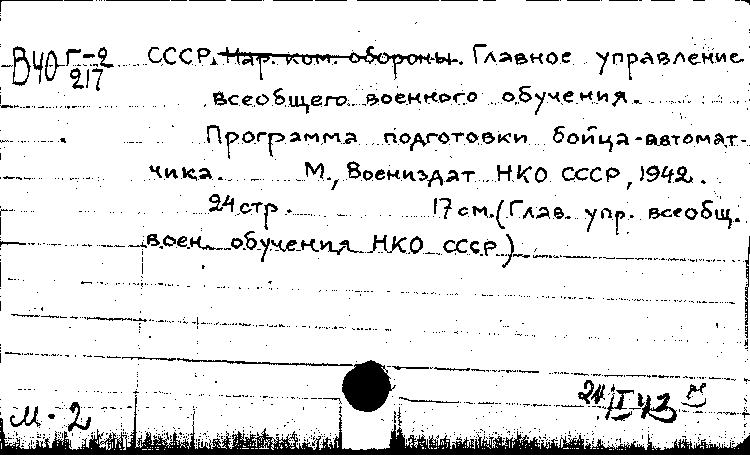 В40 Г-2/217
СССР. Нар. ком. обороны. Главное управление
всеобщего военного обучения.
Программа подготовки бойца-автомат-
чика. М., Воениздат НКО СССР, 1942.
24 стр. 17 см. (Глав. упр. всеобщ.
воен. обучения НКО СССР)
м-2
24/II 43